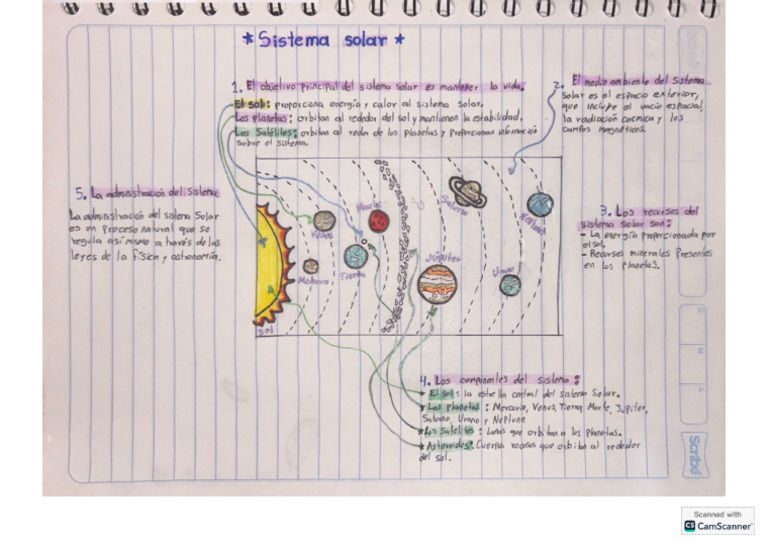 * Sistema solar *
1. El objetivo principal del sistema solar es mantener la vida.
El sol: proporciona energía y calor al sistema solar.
Los planetas: orbitan al rededor del sol y mantienen la estabilidad.
Los Satélites: orbitan al redor de los planetas y proporcionan información
sobre el sistema.
2. El medio ambiente del Sistema
Solar es el espacio exterior,
que incluye el vacío espacial,
la radiación cosmica y los
campos magnéticos.
3. Los recursos del
sistema solar son:
- La energía proporcionada por
el sol.
- Recursos minerales Presentes
en los planetas.
5. La administración del Sistema
La administración del sistema Solar
es un proceso natural que se
regula así mismo a través de las
leyes de la física y astronomía.
Sol
Mercurio
Venus
Tierra
Marte
Júpiter
Saturno
Urano
Neptuno
4. Los componentes del sistema:
* El sol: la estrella central del sistema Solar.
* Los planetas: Mercurio, Venus, Tierra, Marte, Jupiter,
Saturno, Urano y Neptuno
* Los Satélites: Lunas que orbitan a los planetas.
* Asteroides: Cuerpos rocosos que orbitan al rededor
del sol.
Scribe
Scanned with
CS CamScanner